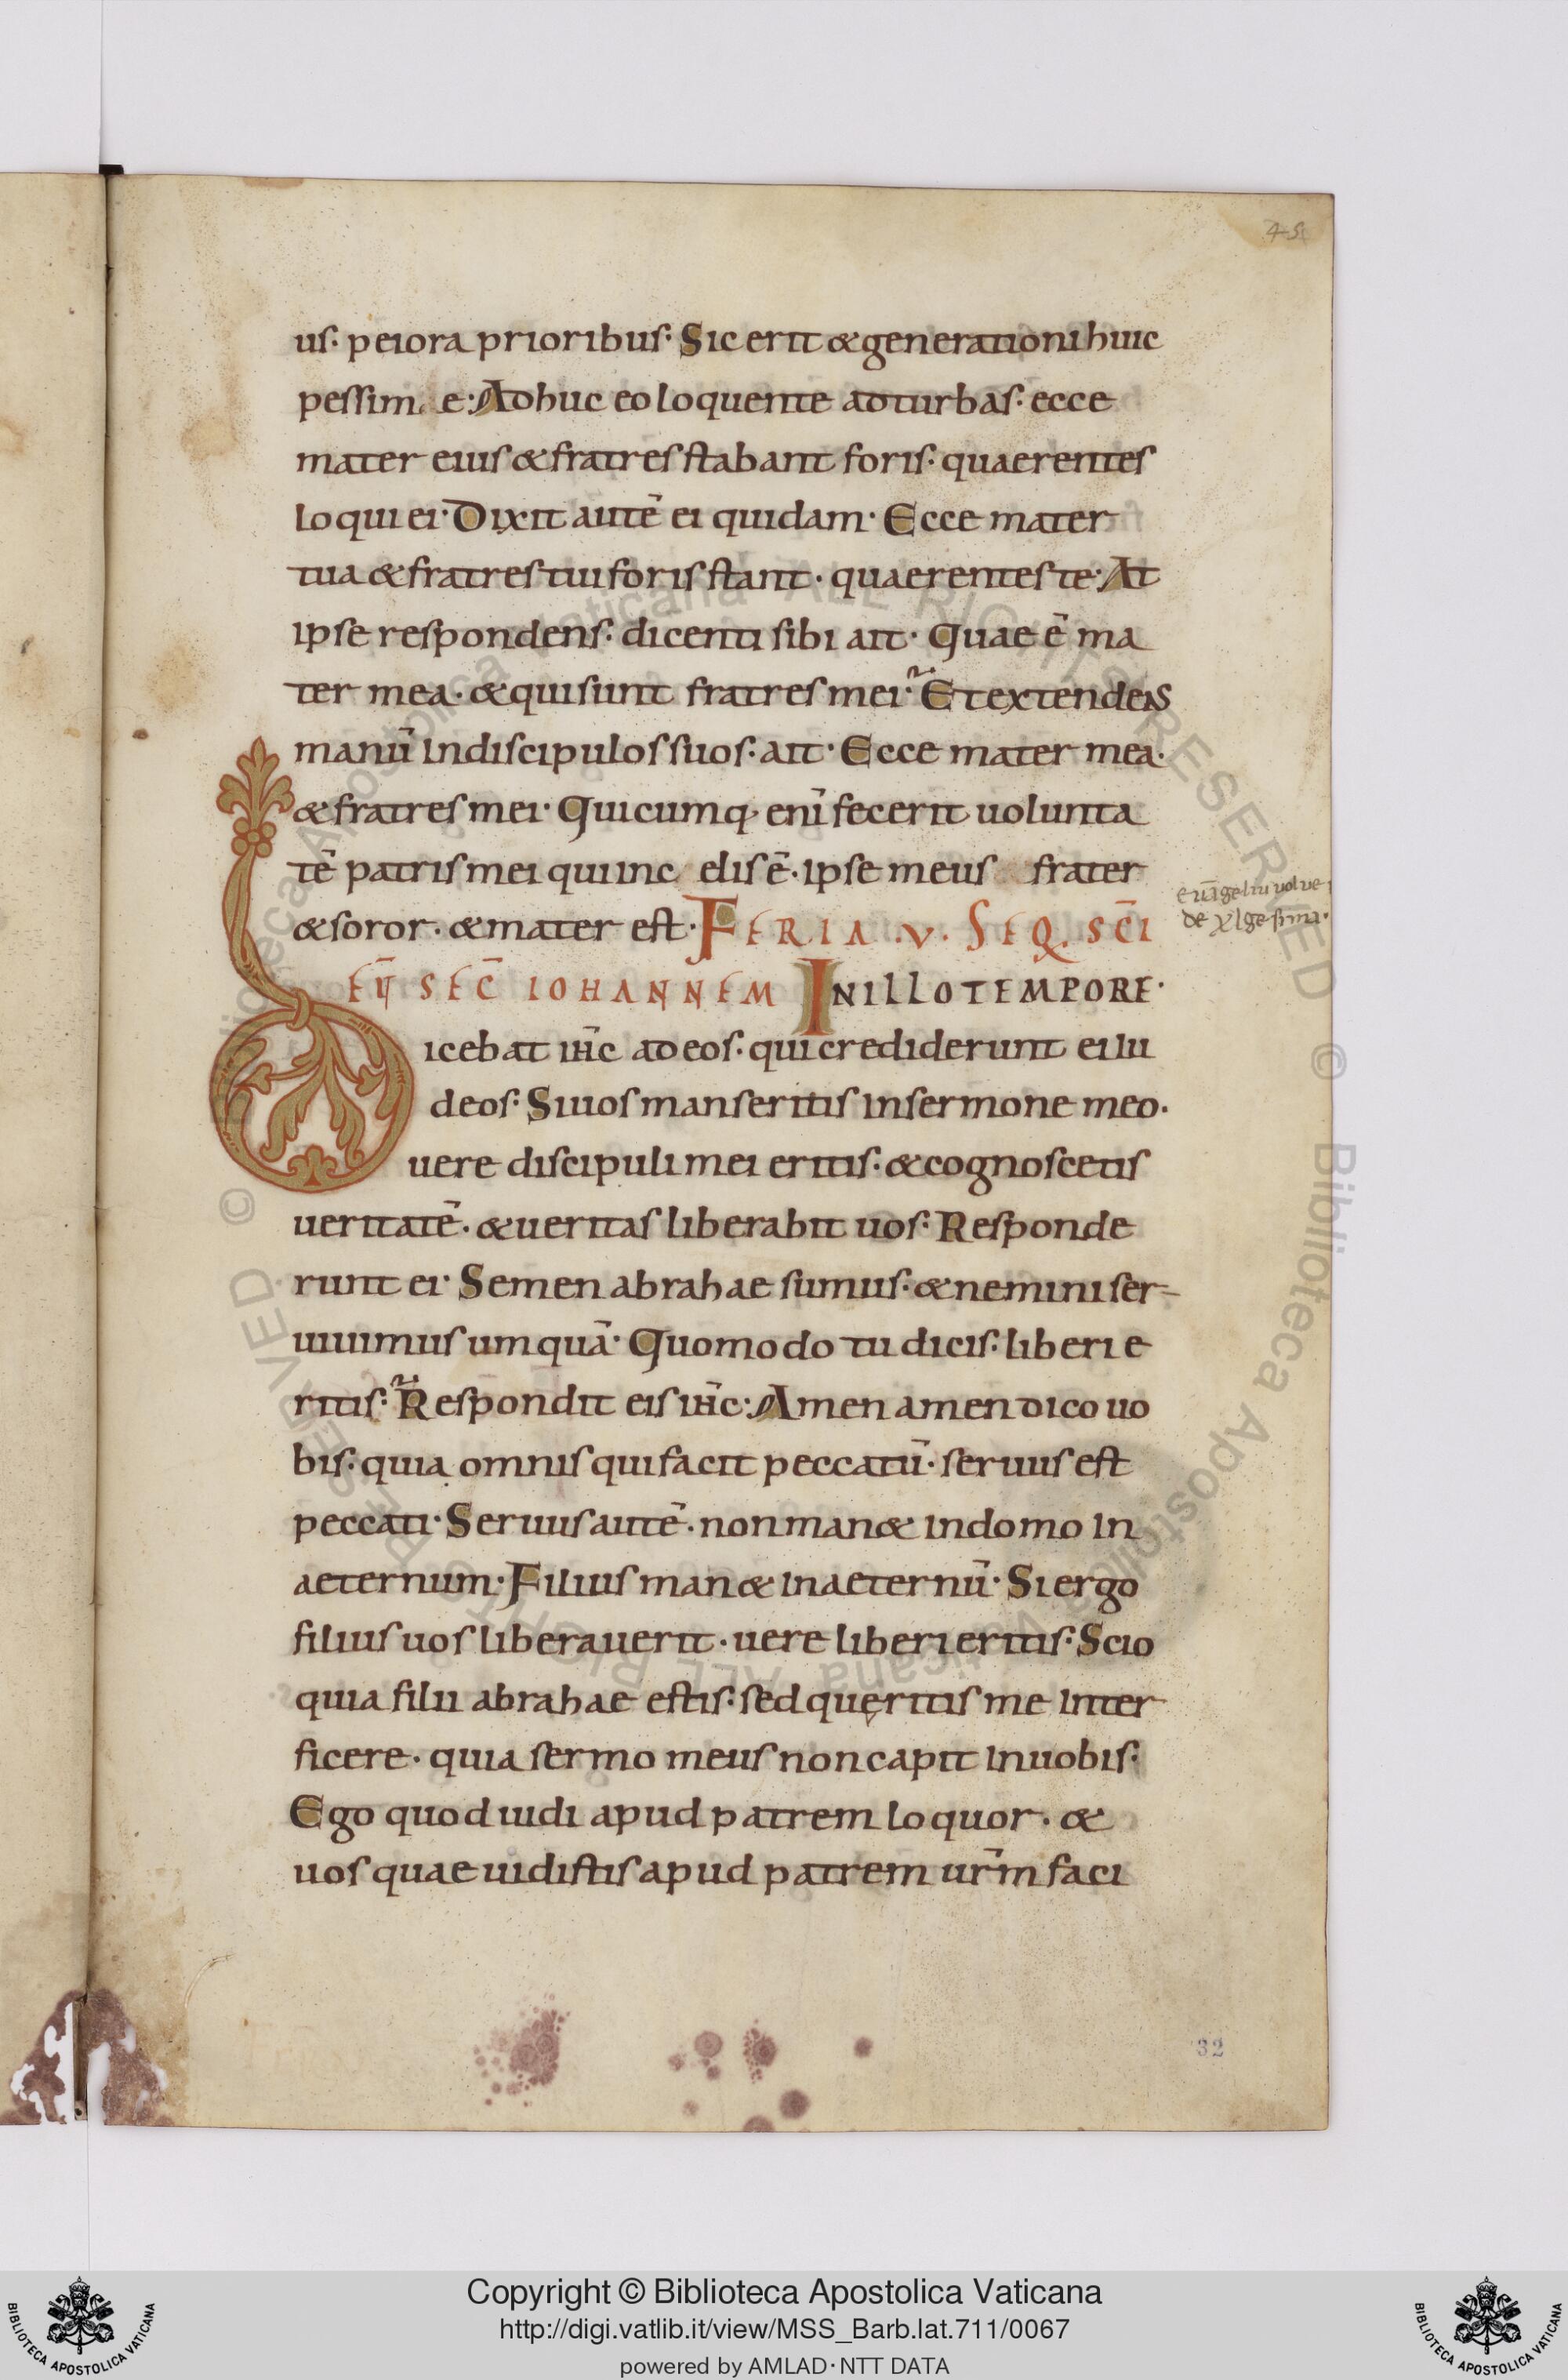 45
us· peiora prioribus· Sic erit & generationi huic
pessim e· Adhuc eo loquente ad turbas· ecce
mater eius & fratres stabant foris· quaerentes
loqui ei· Dixit autē ei quidam· Ecce mater
tua & fratres tui foris stant· quaerentes te· At
ipse respondens· dicenti sibi ait· Quae ē ma
ter mea· & qui sunt fratres mei· Et extendens
manū in discipulos suos· ait· Ecce mater mea·
& fratres mei· Quicumq· enī fecerit uolunta
tē patris mei qui in c elis ē· ipse meus frater
& soror· & mater est· FERIA ·V· SEQ· SC̄I
euāgeliu uolue
de xlgesima·
EŪ SEC̄ IOHANNEM IN ILLO TEMPORE·
Dicebat ih̄c ad eos· qui crediderunt ei iu
deos· Si uos manseritis in sermone meo·
uere discipuli mei eritis· & cognoscetis
ueritatē· & ueritas liberabit uos· Responde
runt ei· Semen abrahae sumus· & nemini ser-
uiuimus umquā· Quomodo tu dicis· liberi e
ritis· Respondit eis ih̄c· Amen amen dico uo
bis· quia omnis qui facit peccatū· seruus est
peccati· Seruus autē· non man& in domo in
aeternum· Filius man& in aeternū· Si ergo
filius uos liberauerit· uere liberi eritis· Scio
quia filii abrahae estis· sed quęritis me inter
ficere· quia sermo meus non capit in uobis·
Ego quod uidi apud patrem loquor· &
uos quae uidistis apud patrem ur̄m faci
32
Copyright © Biblioteca Apostolica Vaticana
http://digi.vatlib.it/view/MSS_Barb.lat.711/0067
powered by AMLAD·NTT DATA
BIBLIOTECA APOSTOLICA VATICANA
BIBLIOTECA APOSTOLICA VATICANA
© Biblioteca Apostolica Vaticana ALL RIGHTS RESERVED
© Biblioteca Apostolica Vaticana ALL RIGHTS RESERVED